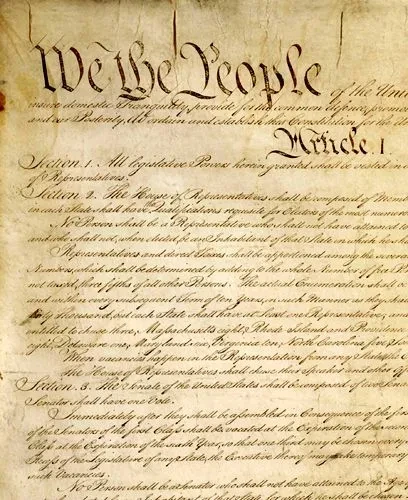 We the People of the Unit
insure domestic Tranquility, provide for the common defence, promo
and our Posterity, do ordain and establish this Constitution for the Un
Article. I.
Section. 1. All legislative Powers herein granted shall be vested in a
of Representatives.
Section. 2. The House of Representatives shall be composed of Memb
in each State shall have Qualifications requisite for Electors of the most numero
No Person shall be a Representative who shall not have attained to
and who shall not, when elected, be an Inhabitant of that State in which he sha
Representatives and direct Taxes shall be apportioned among the severa
Numbers, which shall be determined by adding to the whole Number of free Pe
not taxed, three fifths of all other Persons. The actual Enumeration shall b
and within every subsequent Term of ten Years, in such Manner as they sha
thirty Thousand, but each State shall have at Least one Representative; and
entitled to chuse three, Massachusetts eight, Rhode Island and Providence
eight, Delaware one, Maryland six, Virginia ten, North Carolina five, So
When vacancies happen in the Representation from any State, the E
The House of Representatives shall chuse their Speaker and other Off
Section. 3. The Senate of the United States shall be composed of two Sena
Senator shall have one Vote.
Immediately after they shall be assembled in Consequence of the firs
of the Senators of the first Class shall be vacated at the Expiration of the secon
Class at the Expiration of the sixth Year, so that one third may be chosen every
Recess of the Legislature of any State, the Executive thereof may make temporary
such Vacancies.
No Person shall be a Senator who shall not have attained to the Ag